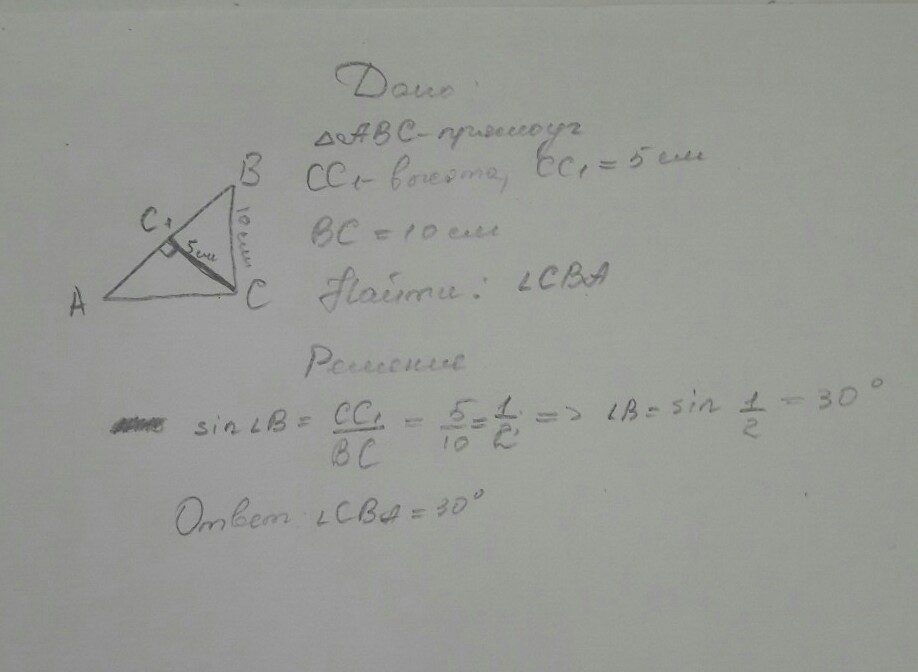 Дано:
△ABC - прямоуг
CC₁ - высота, CC₁ = 5 см
BC = 10 см
Найти: ∠CBA
B
C₁
5 см
10 см
A
C
Решение
sin∠B = CC₁/BC = 5/10 = 1/2 => ∠B = sin 1/2 = 30°
Ответ: ∠CBA = 30°